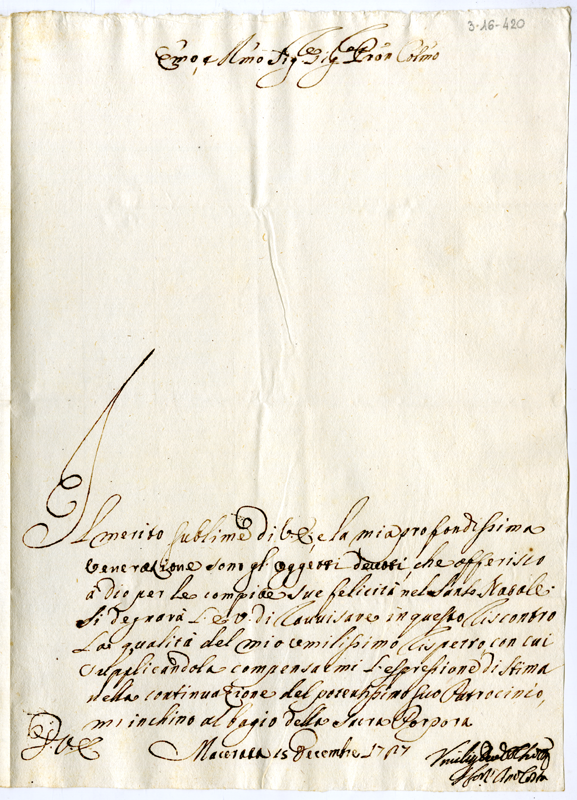 3-16-420
Emo, e Rmo Sig.re Sig.re Pron Colmo
Il merito sublime di V.E., e la mia profondissima
venerazione sono gl'oggetti devoti, che offerisco
a dio per le compite sue felicità nel Santo Natale:
Si degnarà l'E.V. di ravvisare in questo riscontro
la qualità del mio umilissimo rispetto, con cui
supplicandola compensarmi l'espressione di stima
nella continuazione del potentissimo suo Patrocinio,
mi inchino al bagio della Sacra Porpora
D. V. E. Macerata 15 Decembre 1717